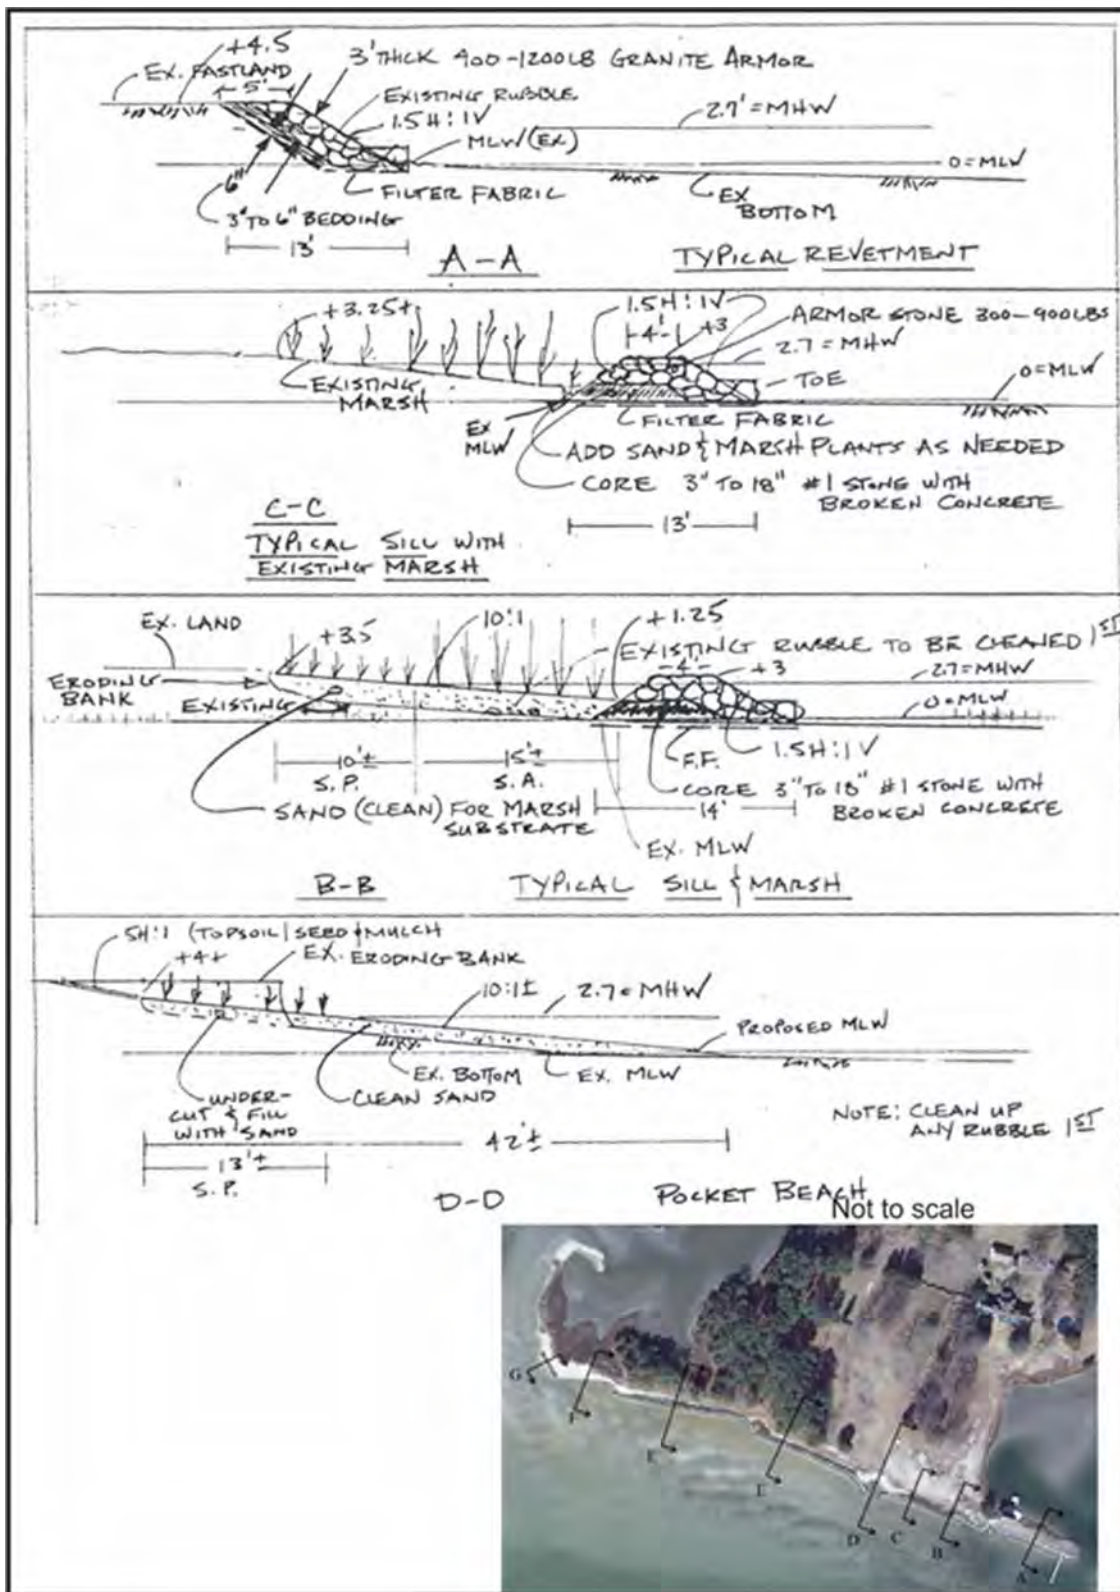 +4.5
EX. FASTLAND
5'
3' THICK 900-1200LB GRANITE ARMOR
EXISTING RUBBLE
1.5H:1V
MLW (EX)
2.7' = MHW
0 = MLW
6"
FILTER FABRIC
EX BOTTOM
3" TO 6" BEDDING
13'
A-A
TYPICAL REVETMENT
+3.25±
1.5H:1V
4'
+3
ARMOR STONE 300-900LBS
2.7 = MHW
EXISTING MARSH
TOE
0 = MLW
EX MLW
FILTER FABRIC
ADD SAND & MARSH PLANTS AS NEEDED
CORE 3" TO 18" #1 STONE WITH
BROKEN CONCRETE
13'
C-C
TYPICAL SILL WITH
EXISTING MARSH
EX. LAND
+3.5
10:1
+1.25
EXISTING RUBBLE TO BE CLEANED 1ST
4'
+3
2.7 = MHW
ERODING
BANK
EXISTING
0 = MLW
10'±
S.P.
15'±
S.A.
F.F.
1.5H:1V
SAND (CLEAN) FOR MARSH
SUBSTRATE
CORE 3" TO 18" #1 STONE WITH
BROKEN CONCRETE
14'
EX. MLW
B-B
TYPICAL SILL & MARSH
5H:1 (TOPSOIL/SEED & MULCH
+4±
EX. ERODING BANK
10:1±
2.7 = MHW
PROPOSED MLW
EX. BOTTOM
EX. MLW
UNDER-
CUT & FILL
WITH SAND
CLEAN SAND
NOTE: CLEAN UP
ANY RUBBLE 1ST
42'±
13'±
S.P.
D-D
POCKET BEACH
Not to scale
G
F
E
D
C
B
A